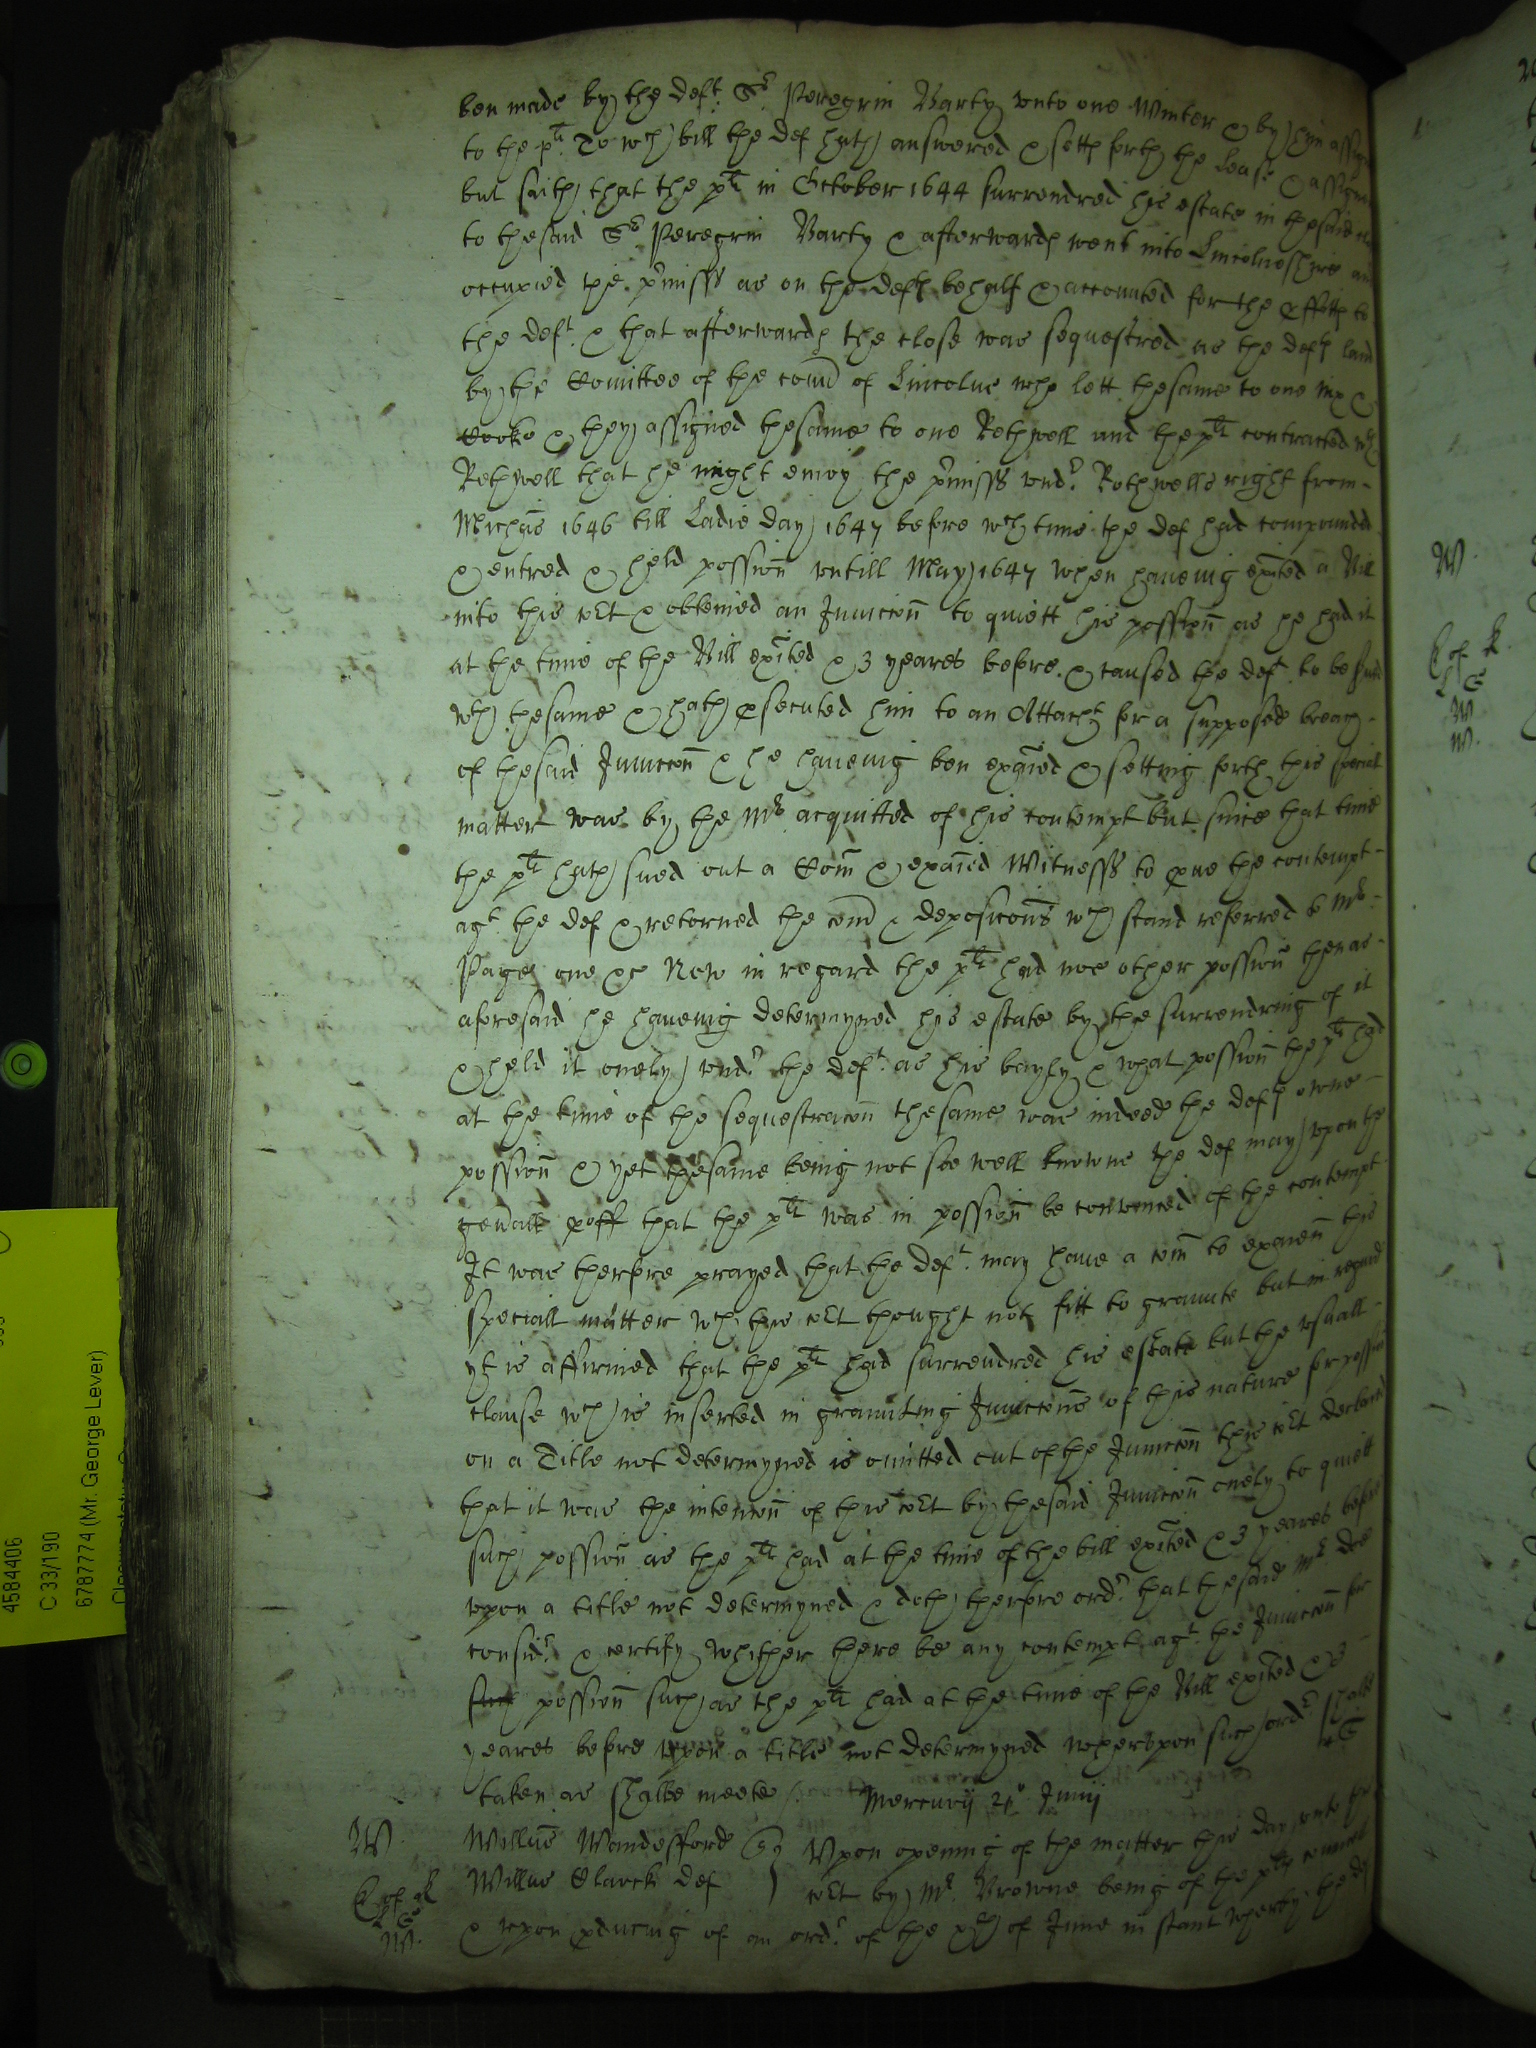 ben made by the deft. Sr. Peregrin Barty vnto one Winter & by him assigned
to the plt. To wch bill the def hath answered & setth forth the lease & assignmt
but saith that the plt in October 1644 surrendred his estate in the said
to thesaid Sr Peregrin Barty & afterwards went into Lincolneshire and
occupied the p'misss as on the defts behalf & accounted for the pffitts to
the deft. & that afterwards the close was sequestred as the defts land
by the Comittee of the count of Lincolne who lett thesame to one &
Cooke & they assigned thesame to one Rothwell and the plt contracted wth
Rothwell that he might enioy the p'misss vndr. Rothwells right from
Michas 1646 till Ladie day 1647 before wch time the def had compounded
& entred & held possion vntill May 1647 when haueing exited a Bill
into this Court & obteined an Iniuccon to quiett his possion as he had it
at the time of the Bill exited & 3 yeares before & caused the deft. to be serued
wth thesame & hath psecuted him to an Attachmt for a supposed breach
of thesaid Iniuccon & he haueing ben exaied & setting forth this special
matter was by the Mr acquitted of his contempt but since that time
the plt hath sued out a Com & exaied Witnesss to pue the contempt
agt. the def & retorned the com & deposicons wch stand referred to Mr
Page one &c Now in regard the plt had noe other possion then as
aforesaid he haueing determyned his estate by the surrendring of it
& held it onely vndr. the deft. as his bayly & what possion the plt had
at the time of the sequestracon thesame was indeed the defts owne
possion & yet thesame being not soe well knowne the def may vpon the
genall pooff that the plt was in possion be convinced of the contempt
It was therfore prayed that the deft. may haue a com to exaien this
speciall matter wch this Court thought not fitt to graunte but in regard
yt is affirmed that the plt had surrendred his estate but the vsuall
clause wch is inserted in graunting Iniuccons of this nature for possion
on a Title not determyned is omitted out of the Iniuccon this Court declared
that it was the intencon of this Court by thesaid Iniuccon onely to quiett
such possion as the plt had at the time of the bill exited & 3 yeares before
vpon a title not determyned & doth therfore ordr. that thesaid Mr doe
considr. & certify whither there be any contempt agt. the Iniuccon for
such possion such as the plt had at the time of the Bill exited & 3
yeares before vpon a title not determyned wherevpon such ordr shalbe
taken as shalbe meete
Mercurij 21o Junij
W
Willus Wandesford
Willus Clarck def
Vpon opening of the matter this day vnto this
Court by Mr. Browne being of the plts councell
& vpon pducing of an ordr. of the xth of June instant wherby the def
4584406
C 33/190
6787774 (Mr. George Lever)